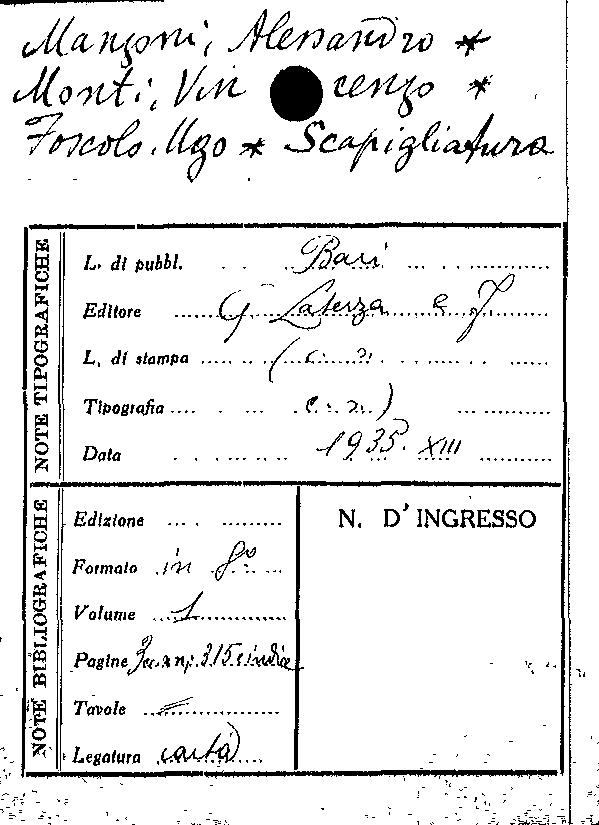 Manzoni, Alessandro *
Monti, Vincenzo *
Foscolo, Ugo * Scapigliatura
NOTE TIPOGRAFICHE
L. di pubbl. Bari
Editore G. Laterza e F.
L. di stampa (c. s.
Tipografia c. s.)
Data 1935. XIII
NOTE BIBLIOGRAFICHE
Edizione
Formato in 8°
Volume 1
Pagine 315 e indice
Tavole =
Legatura carta
N. D'INGRESSO